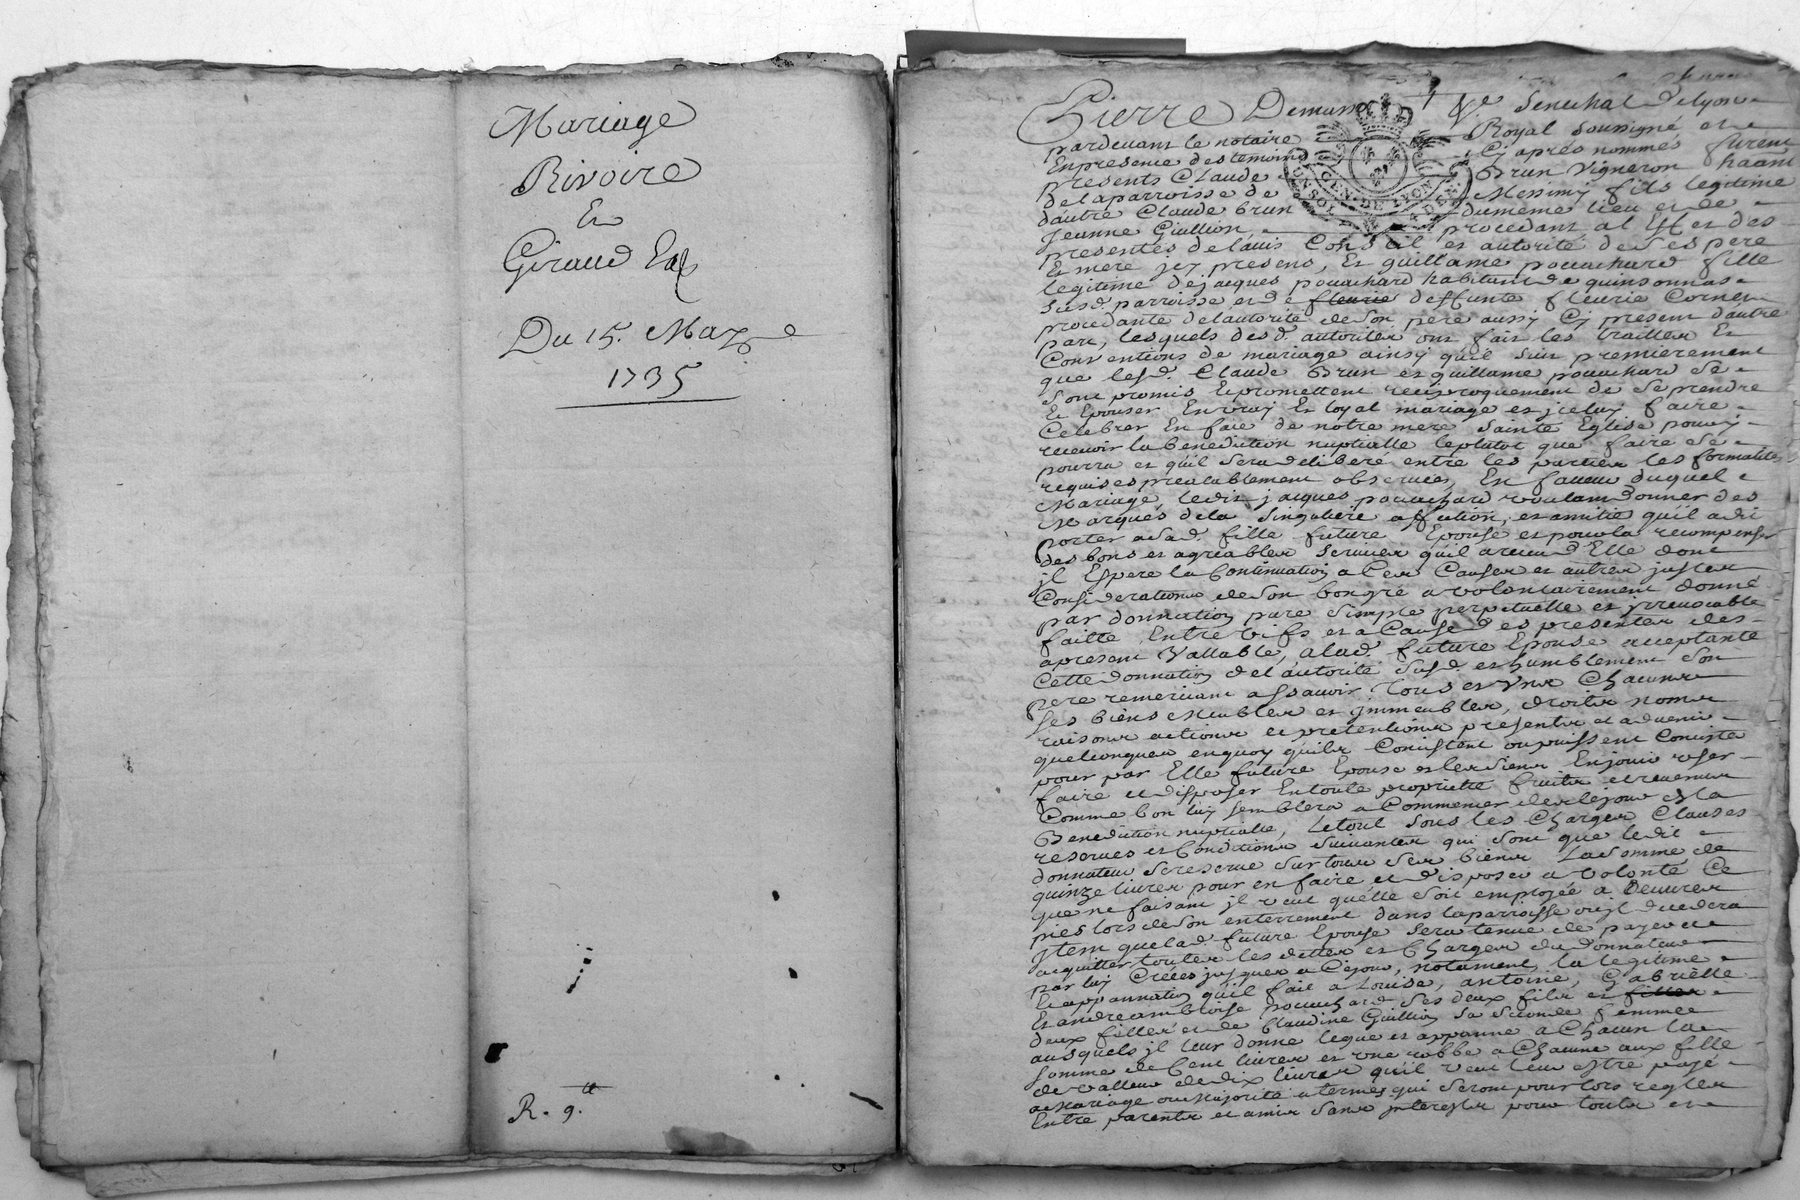 Mariage
Rivoire
Et
Giraud
Du 15. May
1735
R. 9.
Pierre Demasso Senechal de Lyon
pardevant le notaire Royal soussigné et
En presence des temoins Cy apres nommés furent
presents Claude Brun Vigneron
de la parroisse de Messimy fils legitime
dautre Claude brun du meme lieu et de
Jeanne Guillion, procedant al Effet des
presentes de lauis Conseil et autorité de Ses pere
Et mere jcy presens, Et guillame pouachard fille
legitime de jacques pouachard habitant de quinsonnas
susd. parroisse et de fleurie deffunte fleurie Cornet
procedante de lautorité de Son pere aussy Cy present dautre
part, lesquels desd. autorites ont fait les traittes Et
Conventions de mariage ainsy quil suit premierement
que lesd. Claude Brun et guillame pouachard se
sont promis Et promettent reciproquement de se prendre
Et Epouser En vray Et loyal mariage et jceluy faire
Celebrer En face de notre mere Sainte Eglise pour y
receuoir la benediction nuptialle leplutot que faire se
pourra et quil sera deliberé entre les parties les formalites
requises prealablement obseruées, En faueur duquel
Mariage, ledit jacques pouachard voulant donner des
Marques de la Singuliere affection, et amitié quil a di
porter a Sad. fille future Epouse et pour la recompenser
des bons et agreables seruices quil a receu d'Elle dont
jl Espere la Continuation a Ces Causes et autres justes
Considerations de son bongré a volontairement donné
par donnation pure simple perpetuelle et jrreuocable
faitte Entre vifs et a Cause des presentes des
apresent Vallable, alad. future Epouse acceptante
Cette donnation de l'autorité susd. et humblement son
pere remerciant assauoir tous et Uns Chacuns
ses biens meubles et jmmeubles, droits noms
raisons actions et pretentions presents et aduenir
quelconques en quoy quils Consistent ou puissent Consister
pour par Elle future Epouse et les siens En jouir user
faire et disposer En toute proprieté fruits et reuenus
Comme bon luy semblera a Commencer des le jour de la
Benediction nuptialle, le tout sous les Charges Clauses
reserues et Conditions suiuantes qui sont que ledit
donnateur se reserue sur tous ses biens La somme de
quinze liures pour en faire et disposer a volonté Ce
que ne faisant jl veut quelle soit employée a Oeuures
pies lors de Son enterrement dans la parroisse ou jl decedera
jtem que lad. future Epouse sera tenue de payer et
acquitter toutes les dettes et Charges du donnateur
par luy Créées jusques a Cejour, notament la legitime
Et appannation quil fait a Louise, antoine, Gabrielle
Et andre ambloise pouachard ses deux fils et filles
deux filles et de Claudine Guillion sa seconde femme
ausquels jl leur donne legue et appanne a Chacun la
somme de Cent liures et une robbe a Chacune aux fille
de valleur de dix liures quil veut leur estre payé
a Mariage ou Majorité a termes qui seront pour lors regles
Entre parents et amis sans jnterests pour touts et